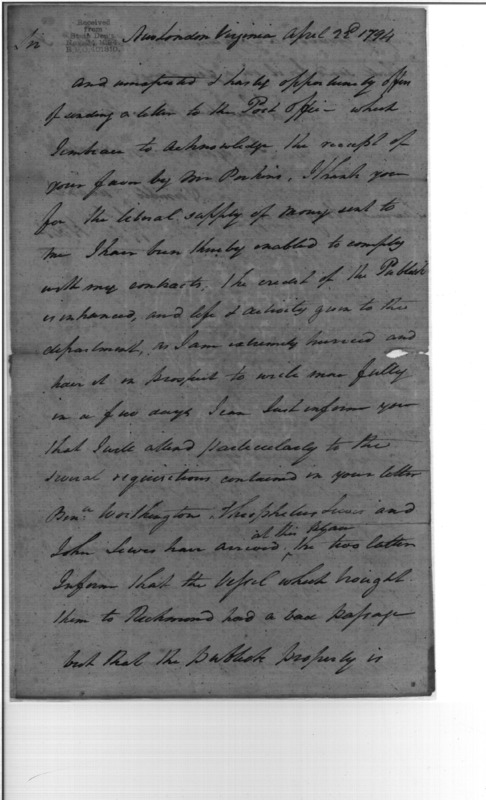 Received
From
Sir
New London Virginia April 2d 1794
And unexpected & hasty opportunity offers
of sending a letter to the Post Office which
I embrace to acknowledge the receipt of
your favor by Mr Perkins. I thank you
for the liberal supply of money sent to
me I have been thereby enabled to comply
with my contracts. The credit of the Publick
is inhanced, and life & activity given to the
department, as I am extremely hurried and
have it in prospect to write more fully
in a few days I can Just inform you
that I will attend particularly to the
several requisitions contained in your letter
Benn Worthington, Theophelus and
at this place
John have arrived, the two latter
Inform that the Vessel which brought
them to Richmond had a bad passage
but that the publick property is